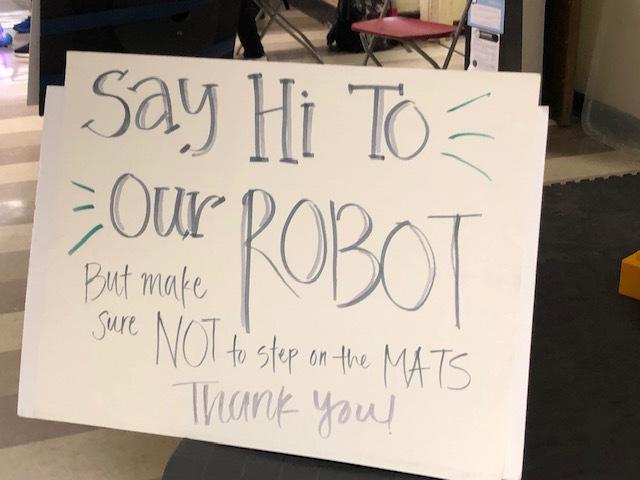 Say Hi To
Our ROBOT
But make
sure NOT to step on the MATS
Thank you!